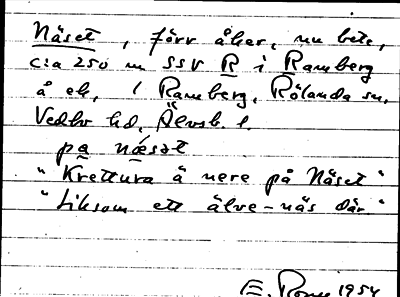 Näset, förr åker, nu bete,
c:a 250 m SSV R i Ramberg
å ek, i Ramberg, Rölanda sn,
Vedbo hd, Älvsb. l.
pa næsət
"Krettura ä nere på Näset"
"Liksom ett älve-näs där"
E. 1954